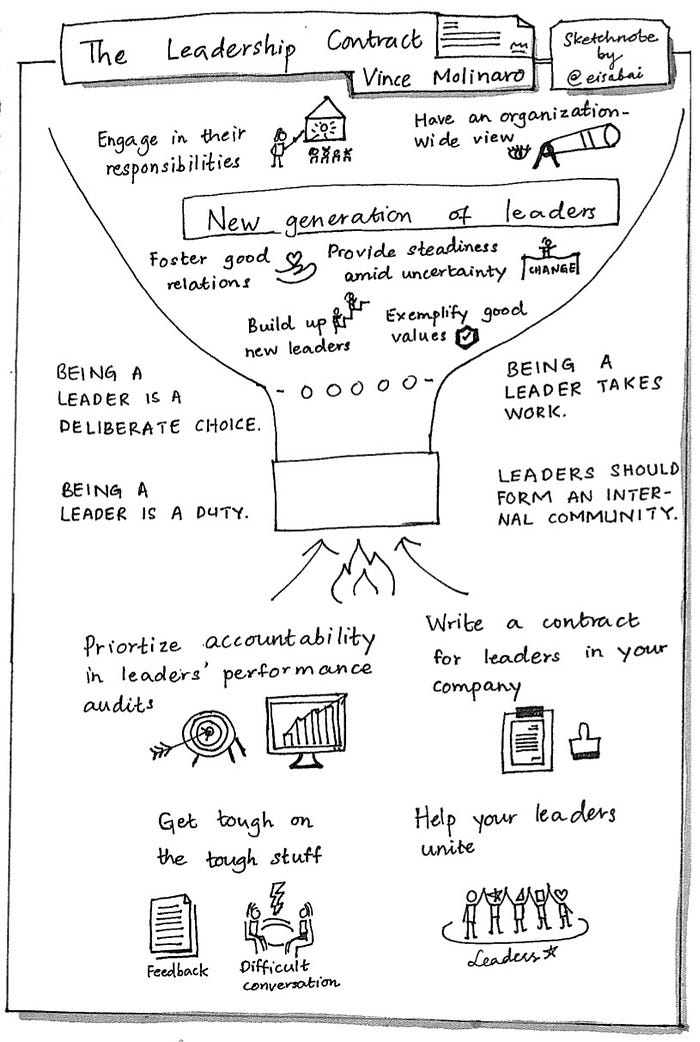 The Leadership Contract
Vince Molinaro
Sketchnote
by
@eisabai
Engage in their
responsibilities
Have an organization-
wide view
New generation of leaders
Foster good
relations
Provide steadiness
amid uncertainty
CHANGE
Build up
new leaders
Exemplify good
values
BEING A
LEADER IS A
DELIBERATE CHOICE.
BEING A
LEADER TAKES
WORK.
BEING A
LEADER IS A DUTY.
LEADERS SHOULD
FORM AN INTER-
NAL COMMUNITY.
Priortize accountability
in leaders' performance
audits
Write a contract
for leaders in your
company
Get tough on
the tough stuff
Help your leaders
unite
Feedback
Difficult
conversation
Leaders